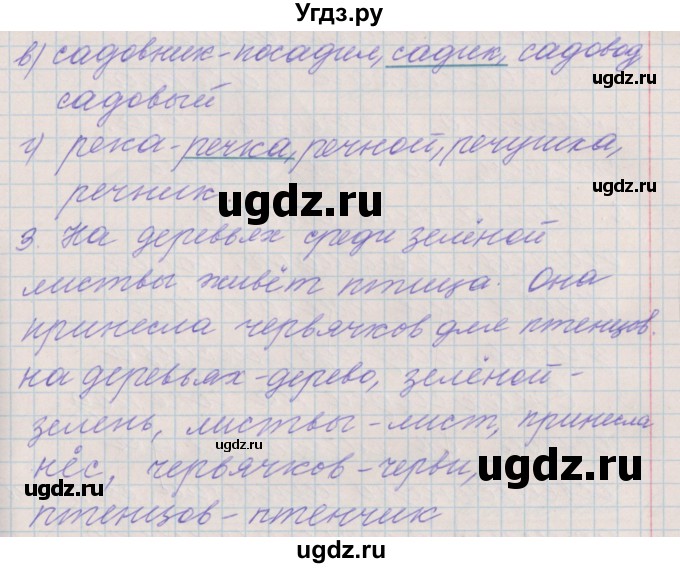 Угдз.ру
в) садовник-посадил, садик, садовод
ugdz.ru
садовый
г) река-речка, речной, речушка,
ugdz.ru
речник.
ugdz.ru
3. На деревьях среди зелёной
листвы живёт птица. Она
принесла червячков для птенцов.
на деревьях-дерево, зелёной-
зелень, листвы-лист, принесла
ugdz.ru
нёс, червячков-черви,
ugdz.ru
ugdz.ru
птенцов-птенчик
ugdz.ru